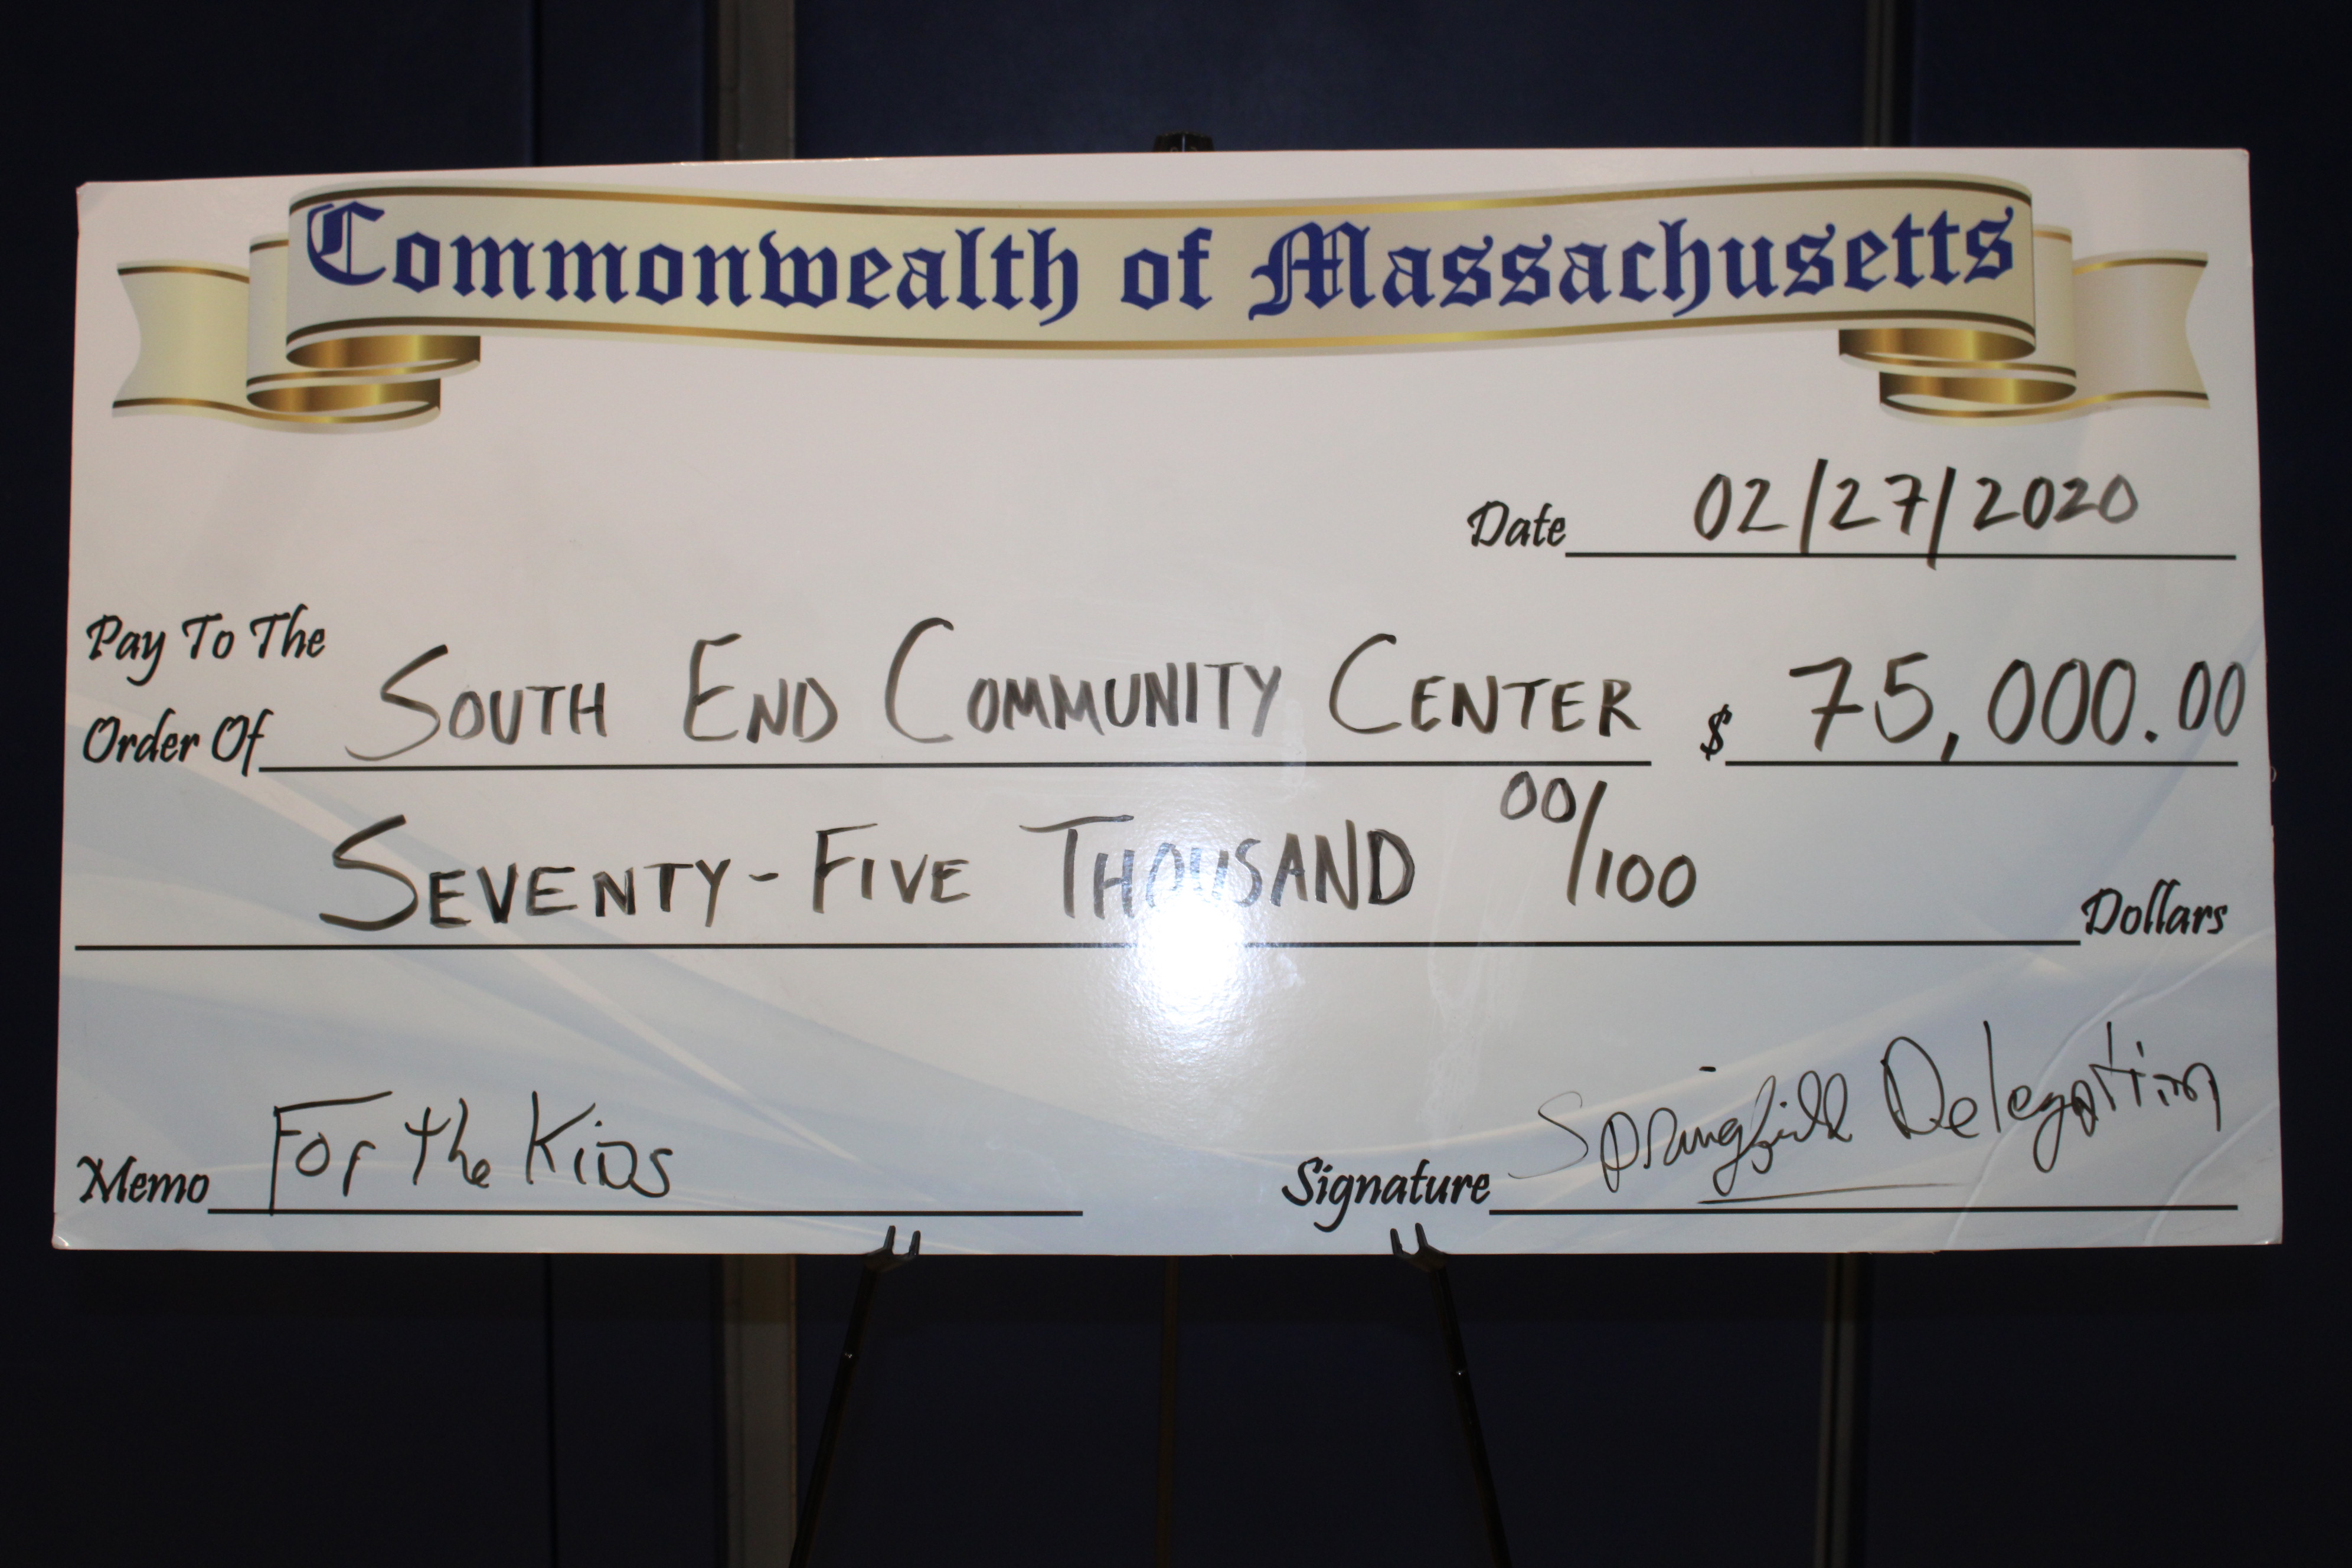 Commonwealth of Massachusetts
Date 02/27/2020
Pay To The
Order Of SOUTH END COMMUNITY CENTER $ 75,000.00
SEVENTY-FIVE THOUSAND 00/100 Dollars
Memo For the KiDs
Signature Springfield Delegation